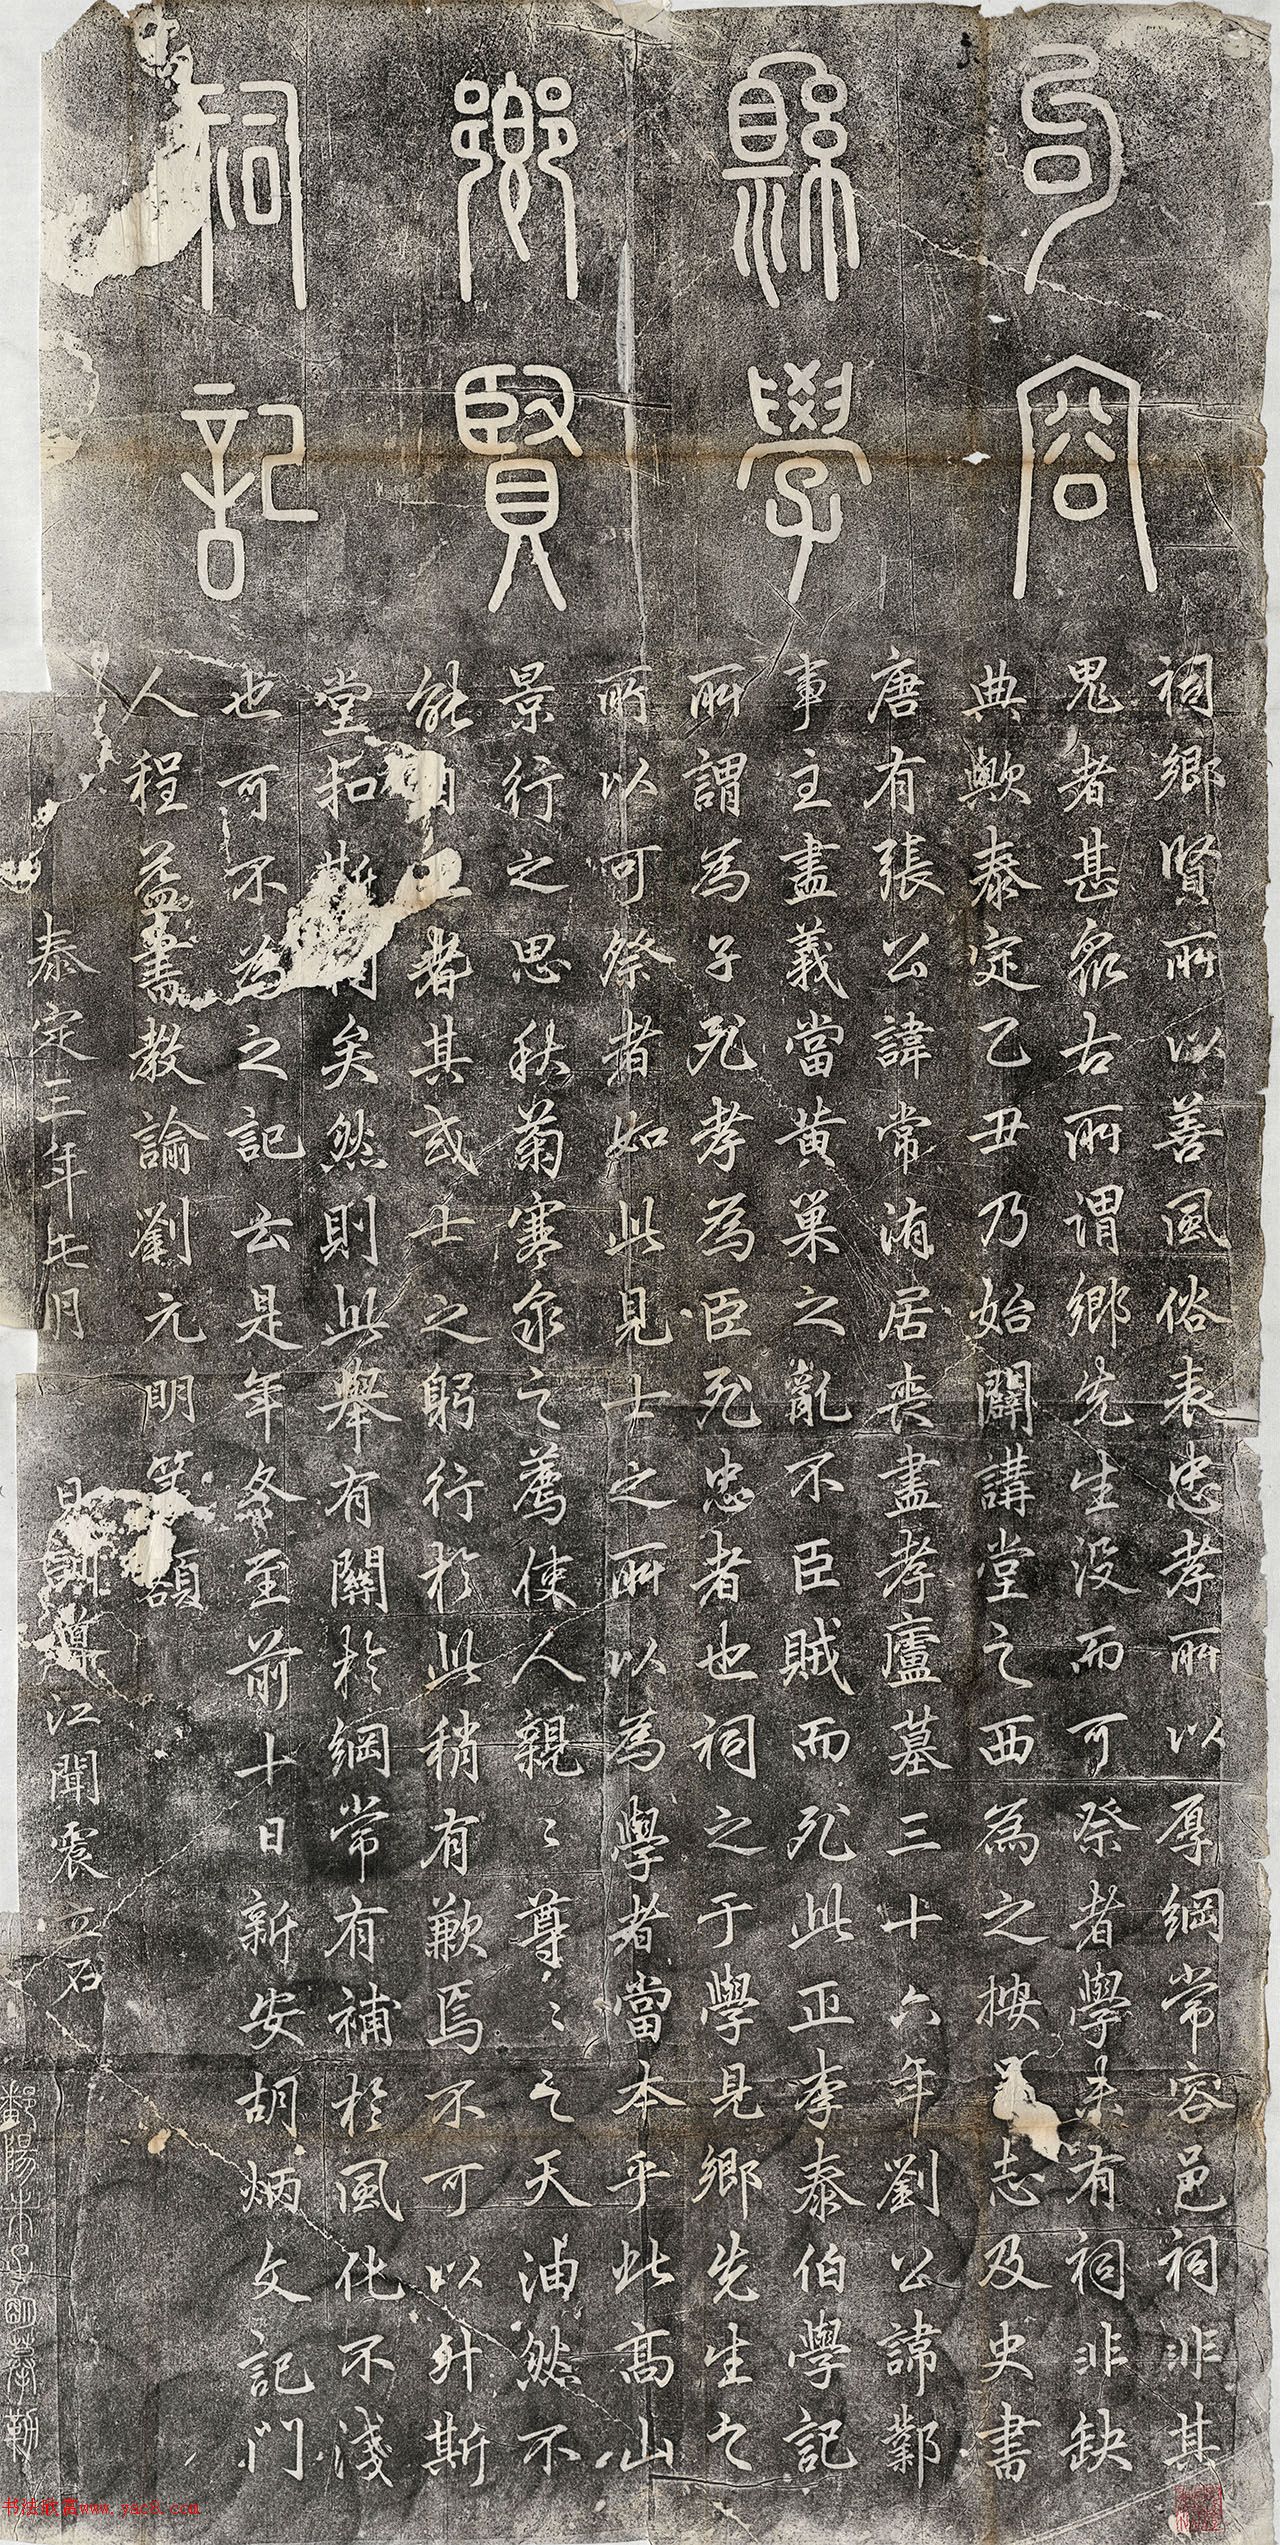 句容
縣學
鄉賢
祠記
祠鄉賢所以善風俗表忠孝所以厚綱常容邑祠非其
鬼者甚眾古所謂鄉先生沒而可祭者學未有祠非缺
典歟泰定乙丑乃始闢講堂之西為之按志及史書
唐有張公諱常洧居喪盡孝廬墓三十六年劉公諱鄴
事主盡義當黃巢之亂不臣賊而死此正李泰伯學記
所謂為子死孝為臣死忠者也祠之于學見鄉先生之
所以可祭者如此見士之所以為學者當本乎此高山
景行之思秋菊寒泉之薦使人親〻尊〻之天油然不
能自已者其或士之躬行於此稍有歉焉不可以升斯
堂拓斯矣然則此舉有關於綱常有補於風化不淺
也可不為之記云是年冬至前十日新安胡炳文記門
人程益書教諭劉元明篆額
泰定三年七月 日訓導江聞震立石
鄱陽朱子明摹勒
书法欣赏www.yac8.com